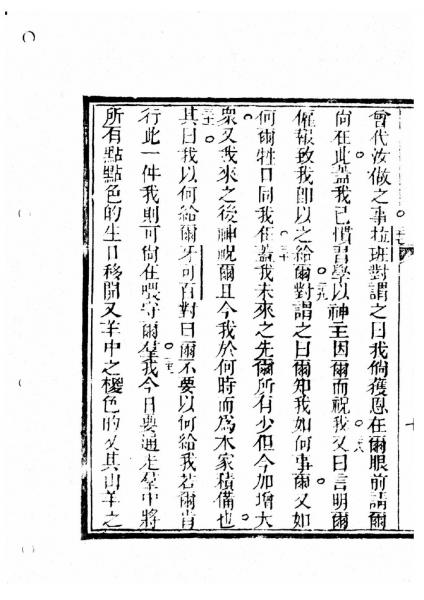 曾代汝做之事拉班對謂之曰我倘獲恩在爾眼前請爾
尙在此蓋我已慣習學以神主因爾而祝我又曰言明爾
僱報致我卽以之給爾對謂之曰爾知我如何事爾又如
何爾牲口同我在蓋我未來之先爾所有少但今加增大
衆又我來之後神祝爾且今我於何時而爲本家積備也
其曰我以何給爾牙可百對曰爾不要以何給我若爾肯
行此一件我則可尙在喂守爾羣我今日要通走羣中將
所有點點色的生口移開又羊中之椶色的又其山羊之